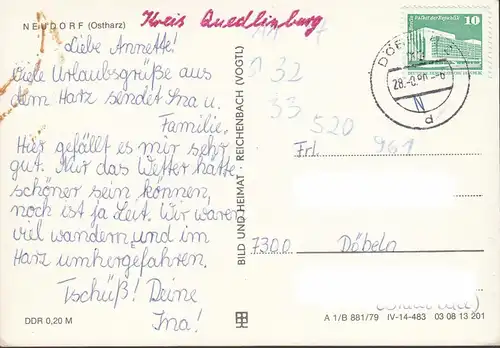 NEUDORF (Ostharz)
Kreis Quedlinburg
Liebe Annette!
Viele Urlaubsgrüße aus
dem Harz sendet Ina u.
Familie.
Hier gefällt es mir sehr
gut. Nur das Wetter hätte
schöner sein können,
noch ist ja Zeit. Wir waren
viel wandern und im
Harz umhergefahren.
Tschüß! Deine
Ina!
DDR 0,20 M
BILD UND HEIMAT REICHENBACH (VOGTL)
10
32
33
520
961
Frl.
7300 Döbeln
A 1/B 881/79 IV-14-483 03 08 13 201